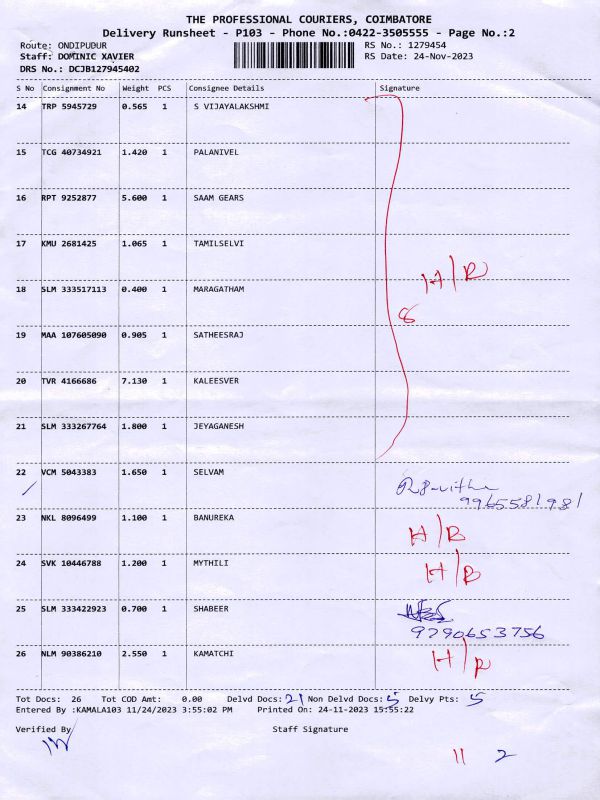 THE PROFESSIONAL COURIERS, COIMBATORE
Delivery Runsheet - P103 - Phone No.:0422-3505555 - Page No.:2
Route: ONDIPUDUR RS No.: 1279454
Staff: DOMINIC XAVIER RS Date: 24-Nov-2023
DRS No.: DCJB127945402
S No Consignment No Weight PCS Consignee Details Signature
14 TRP 5945729 0.565 1 S VIJAYALAKSHMI
15 TCG 40734921 1.420 1 PALANIVEL
16 RPT 9252877 5.600 1 SAAM GEARS
17 KMU 2681425 1.065 1 TAMILSELVI
H/B
18 SLM 333517113 0.400 1 MARAGATHAM
8
19 MAA 107605090 0.905 1 SATHEESRAJ
20 TVR 4166686 7.130 1 KALEESVER
21 SLM 333267764 1.800 1 JEYAGANESH
22 VCM 5043383 1.650 1 SELVAM
9965581981
23 NKL 8096499 1.100 1 BANUREKA H/B
24 SVK 10446788 1.200 1 MYTHILI H/B
25 SLM 333422923 0.700 1 SHABEER
9790653756
26 NLM 90386210 2.550 1 KAMATCHI H/P
Tot Docs: 26 Tot COD Amt: 0.00 Delvd Docs: 21 Non Delvd Docs: 5 Delvy Pts: 5
Entered By :KAMALA103 11/24/2023 3:55:02 PM Printed On: 24-11-2023 15:55:22
Verified By Staff Signature
11 2